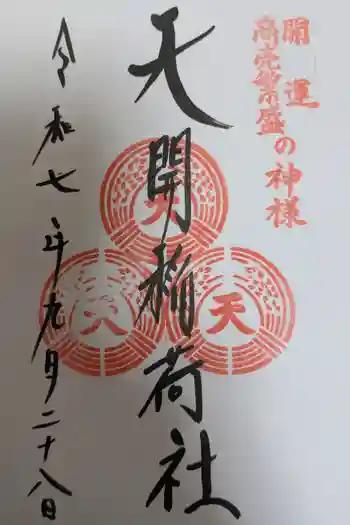 開運
商売繁盛の神様
天開稲荷社
令和七年九月二十八日
天
天
天